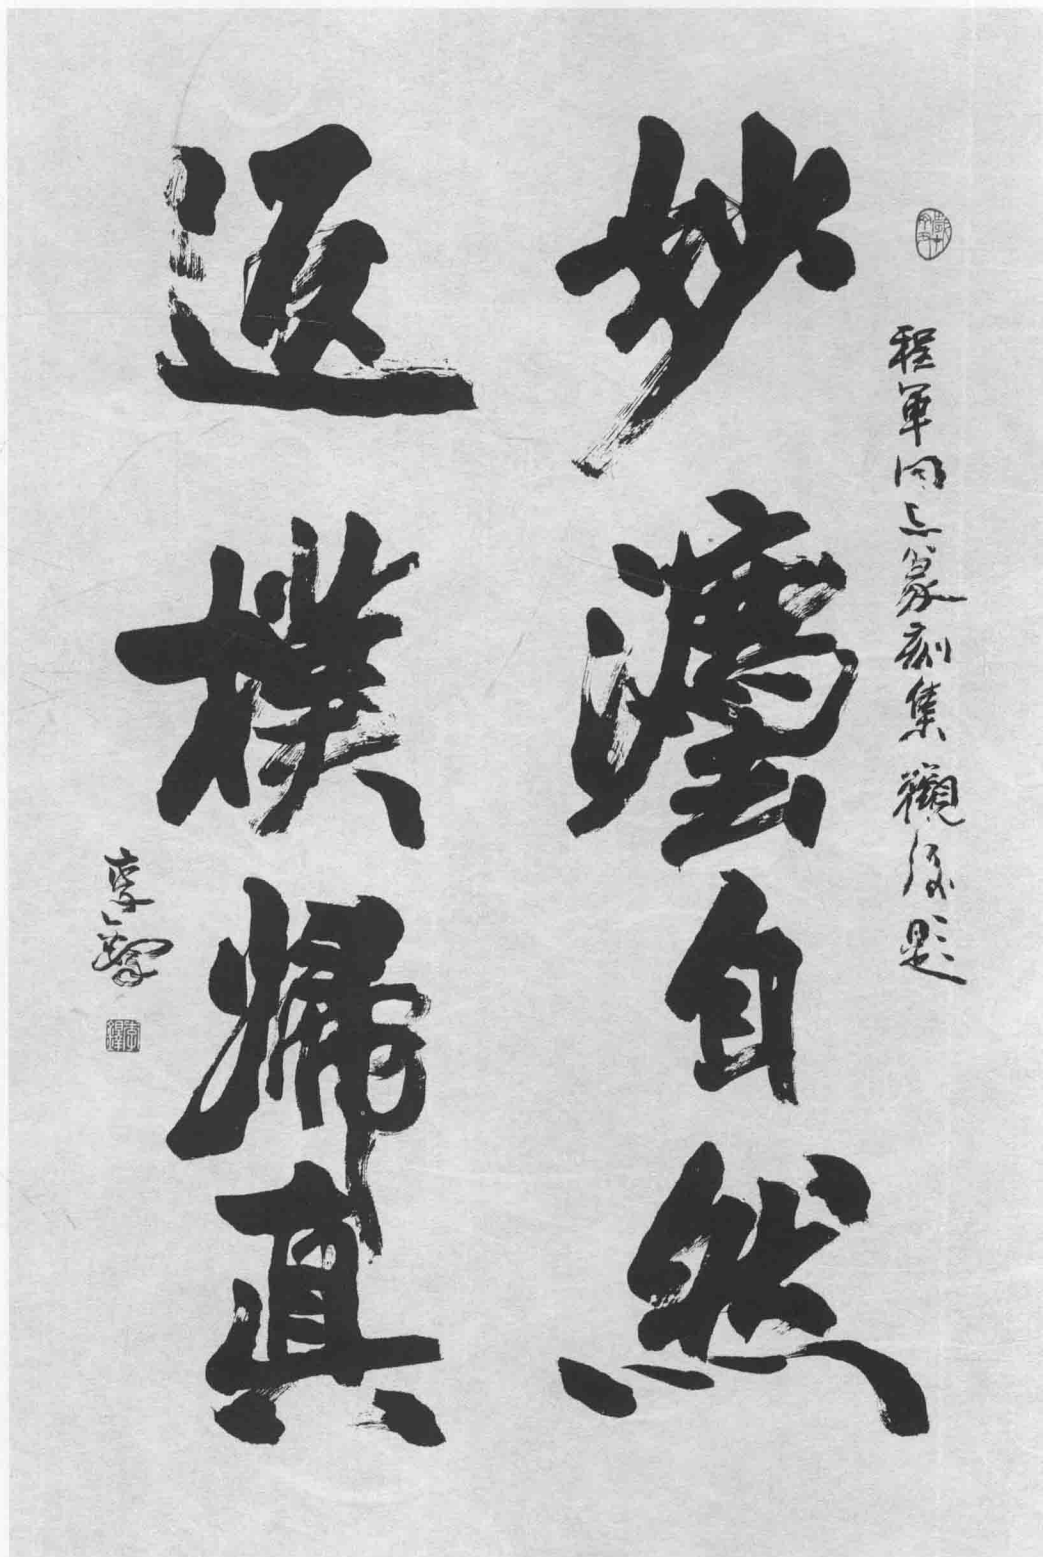 程軍同志篆刻集觀後題
妙灋自然
返樸歸真
李鐸